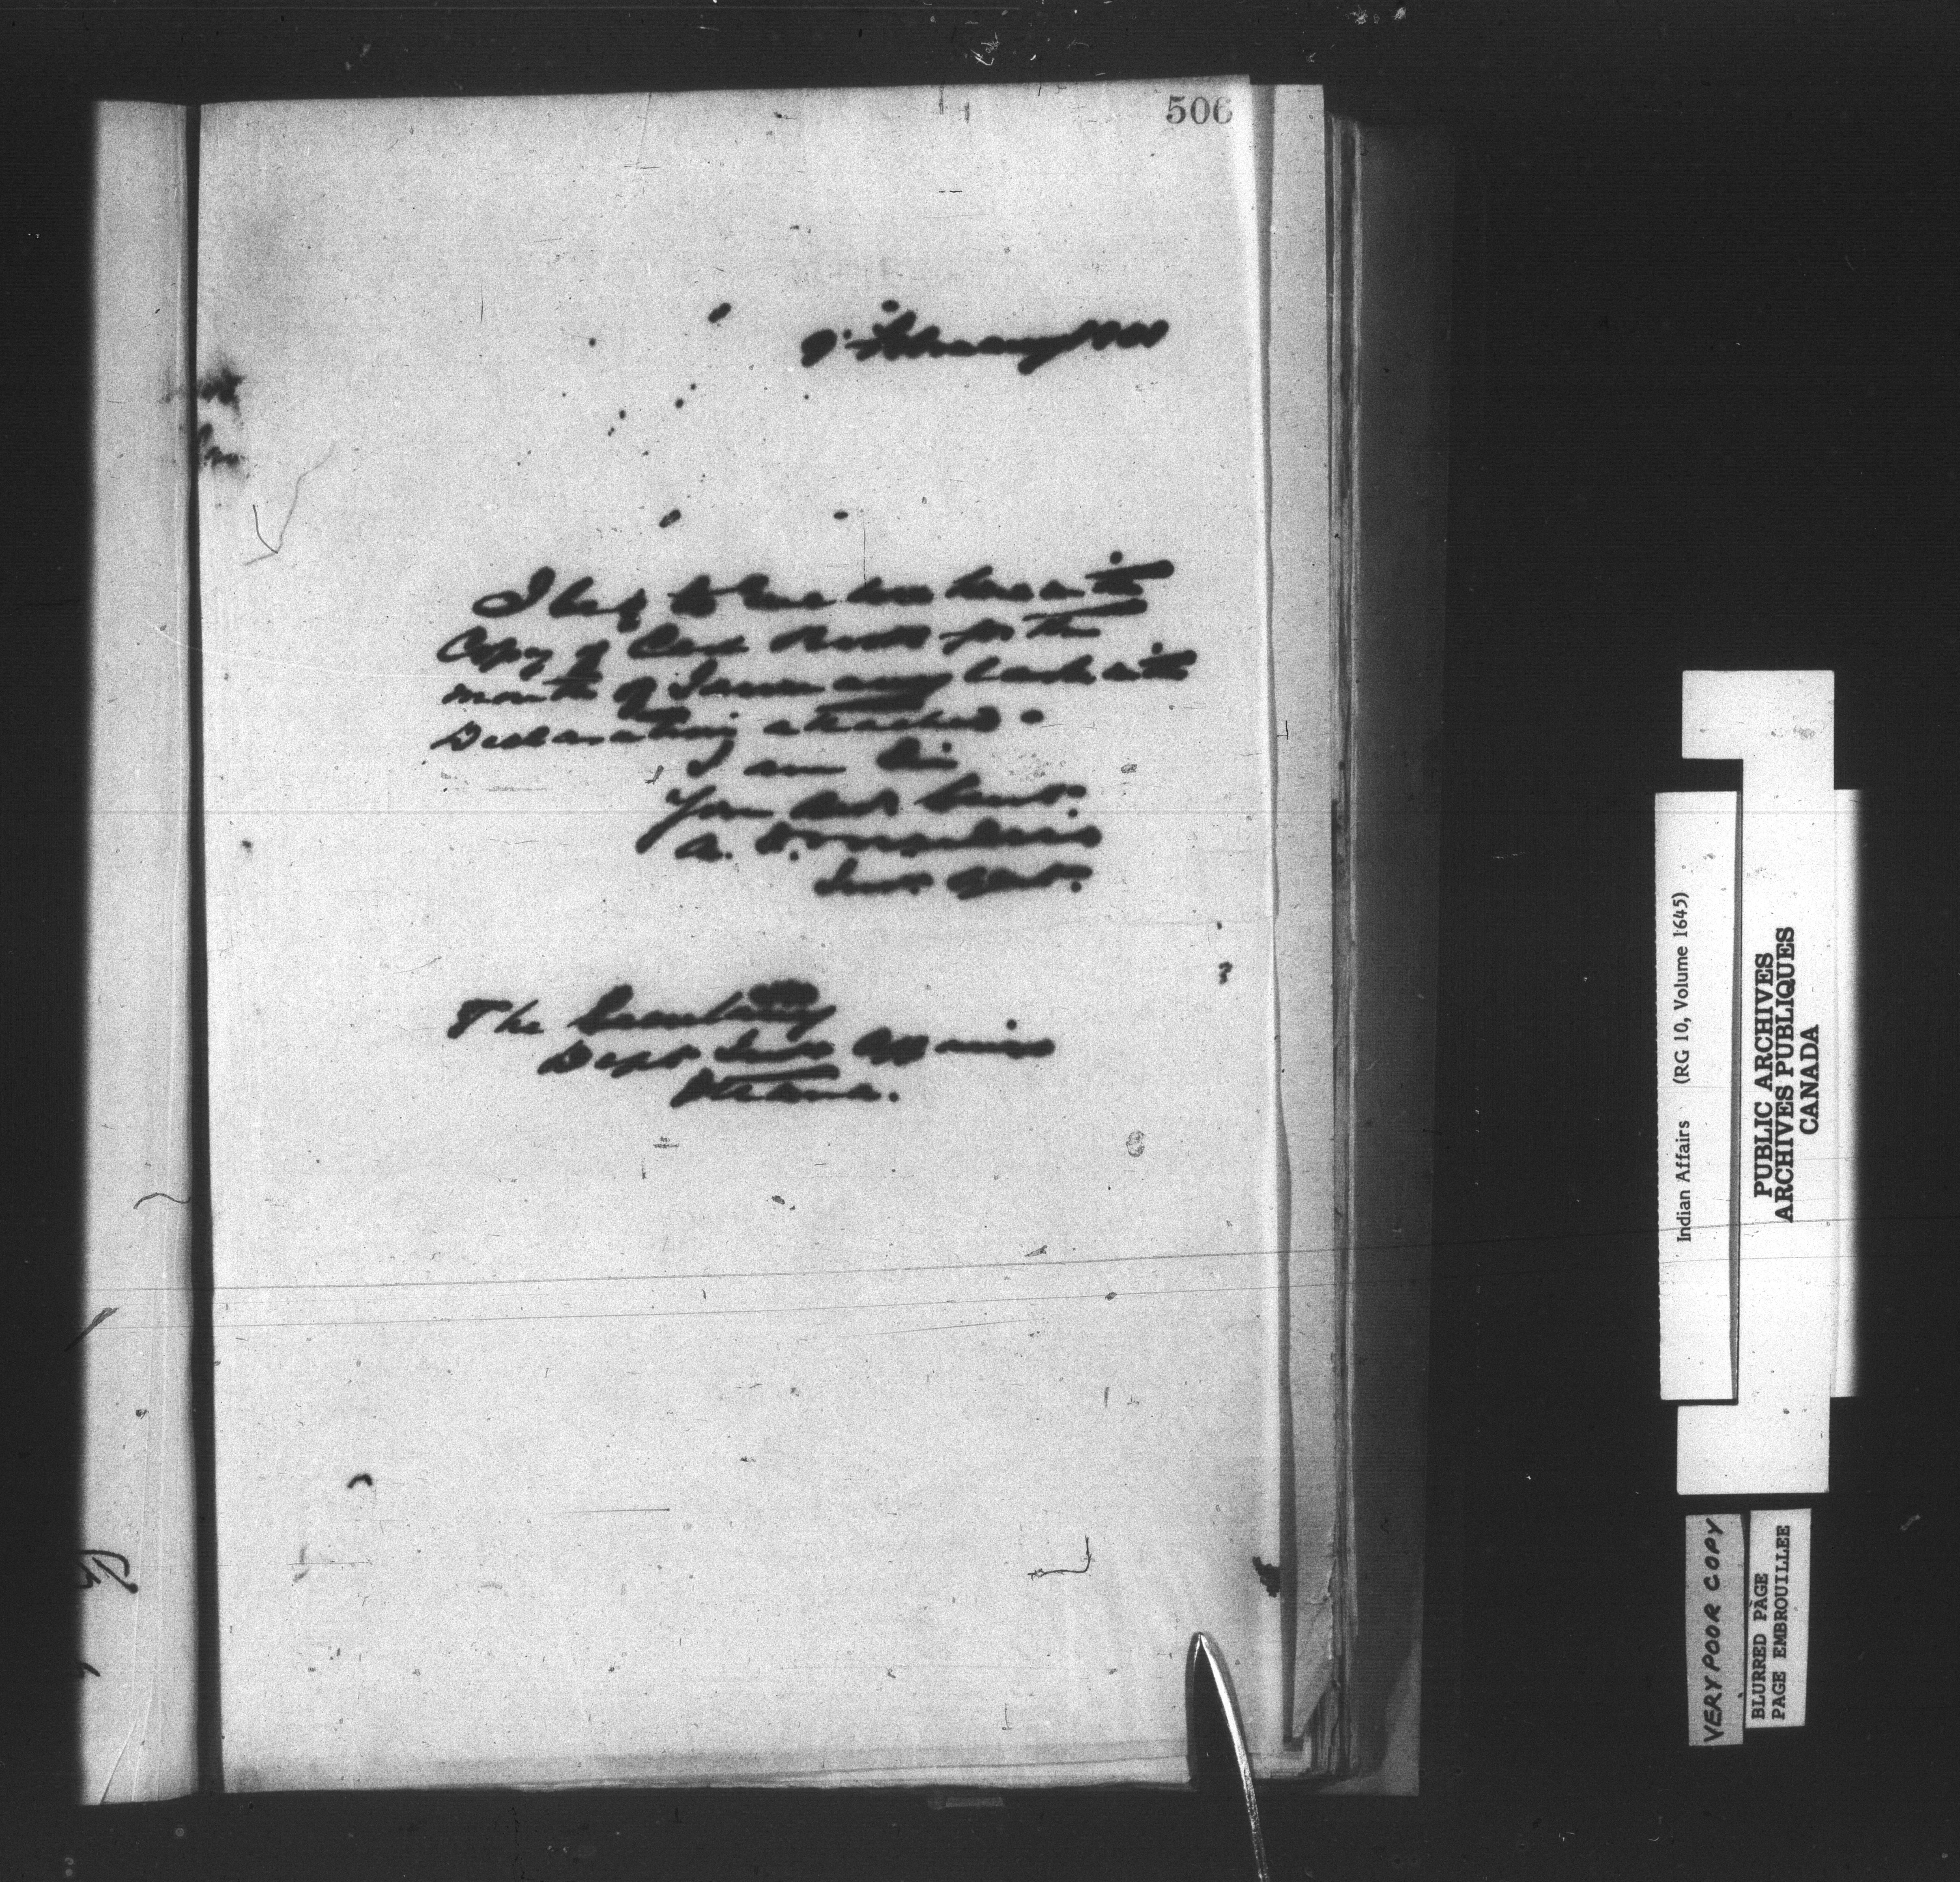 506
9. February 1901
I beg to hand here with
Copy of Cash Book for the
month of January last with
Declaration attached.
I am Sir
Your Obt. Servt.
A.
Ind. Agent.
The Secretary
Dept Ind Affairs
Ottawa.
Indian Affairs (RG 10, Volume 1645)
PUBLIC ARCHIVES
ARCHIVES PUBLIQUES
CANADA
VERY POOR COPY
BLURRED PAGE
PAGE EMBROUILLEE